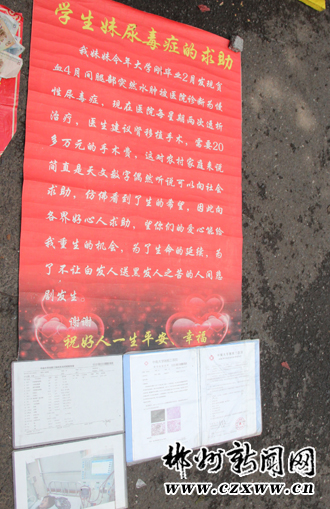 学生妹尿毒症的求助
我妹妹今年大学刚毕业2月发现贫
血4月间腿部突然水肿被医院诊断为慢
性尿毒症，现在医院每星期两次透析
治疗，医生建议肾移植手术，需要20
多万元的手术费，这对农村家庭来说
简直是天文数字偶然听说可以向社会
求助，仿佛看到了生的希望，因此向
各界好心人求助，望你们的爱心能给
我重生的机会，为了生命的延续，为
了不让白发人送黑发人之苦的人间悲
剧发生
谢谢
祝好人一生平安 幸福
郴州新闻网
www.czxww.cn